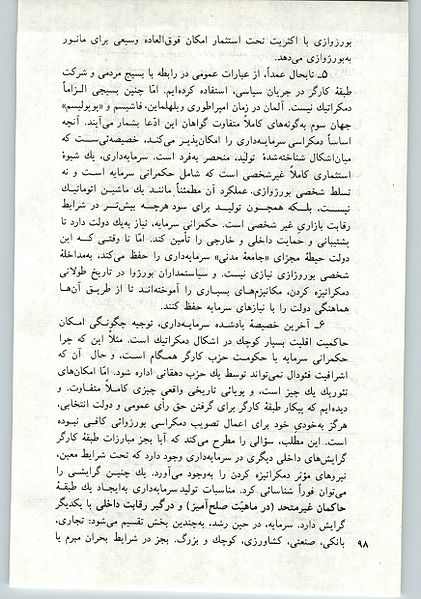 بورژوازی با اکثریت تحت استثمار امکان فوق‌العاده وسیعی برای مانور
به‌بورژوازی می‌دهد.
۵ـ تابحال عمداً، از عبارات عمومی در رابطه با بسیج مردمی و شرکت
طبقهٔ کارگر در جریان سیاسی، استفاده کرده‌ایم. امّا چنین بسیجی الزاماً
دمکراتیك نیست. آلمان در زمان امپراطوری ویلهلماین، فاشیسم و «پوپولیسم»
جهان سوم به‌گونه‌های کاملاً متفاوت گواهان این ادّعا بشمار می‌آیند. آنچه
اساساً دمکراسی سرمایه‌داری را امکان‌پذیر می‌کند، خصیصه‌ئی‌ست که
میان‌اشکال شناخته‌شدهٔ تولید، منحصر به‌فرد است. سرمایه‌داری، یك شیوهٔ
استثماری کاملاً غیرشخصی است که شامل حکمرانی سرمایه است و نه
تسلط شخصی بورژوازی، عملکرد آن مطمئناً مانند یك ماشین اتوماتیك
نیست، بلکه همچون تولید برای سود هرچه بیش‌تر در شرایط
رقابت بازاری غیر شخصی است. حکمرانی سرمایه، نیاز به‌یك دولت دارد تا
پشتیبانی و حمایت داخلی و خارجی را تأمین کند. امّا تا وقتی که این
دولت حیطهٔ مجزای «جامعهٔ مدنی» سرمایه‌داری را حفظ می‌کند، به‌مداخلهٔ
شخصی بورژوازی نیازی نیست. و سیاستمداران بورژوا در تاریخ طولانی
دمکراتیزه کردن، مکانیزم‌های بسیاری را آموخته‌اند تا از طریق آن‌ها
هماهنگی دولت را با نیازهای سرمایه حفظ کنند.
۶ـ آخرین خصیصهٔ یادشده سرمایه‌داری، توجیه چگونگی امکان
حاکمیت اقلیت بسیار کوچك در اشکال دمکراتیك است. مثلاً این که چرا
حکمرانی سرمایه با حکومت حزب کارگر همگام است، و حال آن که
اشرافیت فئودال نمی‌تواند توسط یك حزب دهقانی اداره شود. امّا امکان‌های
تئوریك یك چیز است، و پویائی تاریخی واقعی چیزی کاملاً متفاوت، و
دیده‌ایم که پیکار طبقهٔ کارگر برای گرفتن حق رأی عمومی و دولت انتخابی،
هرگز به‌خودیِ خود برای اعمال تصویب دمکراسی بورژوائی کافی نبوده
است. این مطلب، سؤالی را مطرح می‌کند که آیا بجز مبارزات طبقهٔ کارگر
گرایش‌های داخلی دیگری در سرمایه‌داری وجود دارد که تحت شرایط معین،
نیروهای مؤثر دمکراتیزه کردن را به‌وجود می‌آورد. یك چنین گرایشی را
می‌توان فوراً شناسائی کرد. مناسبات تولید سرمایه‌داری به‌ایجاد یك طبقهٔ
حاکمان غیرمتحد (در ماهیّت صلح‌آمیز) و درگیر رقابت داخلی با یکدیگر
گرایش دارد. سرمایه، در حین رشد، به‌چندین بخش تقسیم می‌شود: تجاری،
بانکی، صنعتی، کشاورزی، کوچك و بزرگ. بجز در شرایط بحران مبرم یا
۹۸